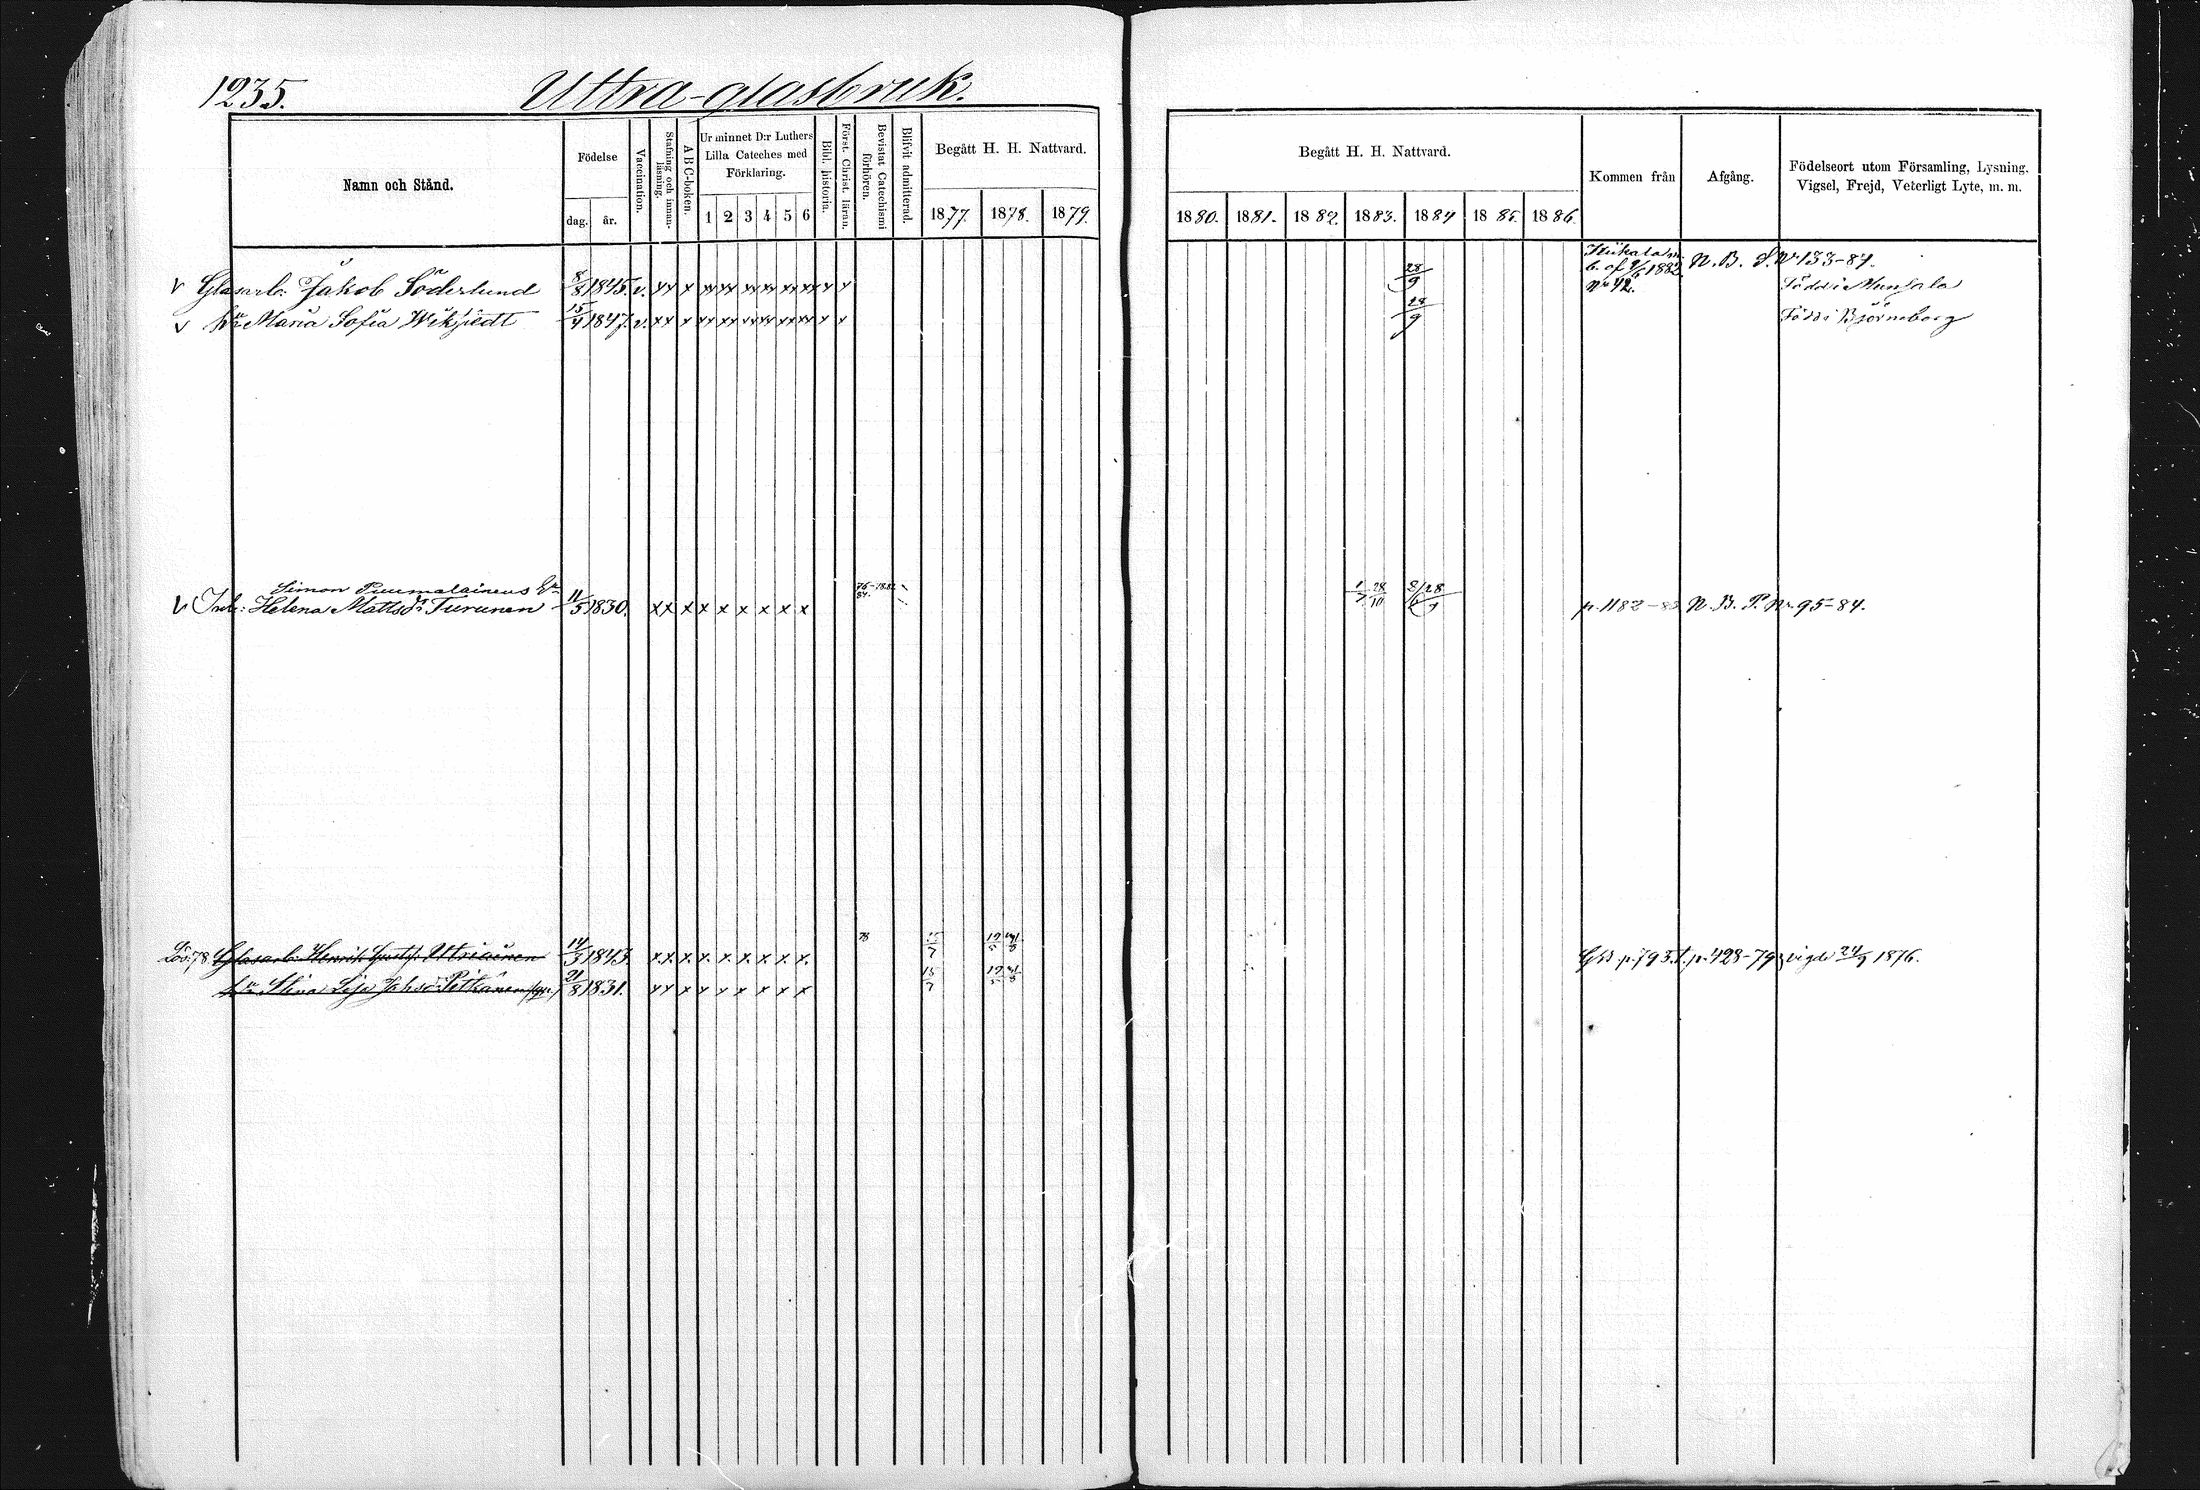 1235.
Uttra-glasbruk.
Namn och Stånd.
Födelse
dag. år.
Vaccination.
Stafning och innanläsning.
A B C-boken.
Ur minnet D:r Luthers
Lilla Cateches med
Förklaring.
1 2 3 4 5 6
Bibl. historia.
Först. Christ. läran.
Bevistat Catechismi förhören.
Blifvit admitterad.
Begått H. H. Nattvard.
1877. 1878. 1879.
Begått H. H. Nattvard.
1880. 1881. 1882. 1883. 1884 1885. 1886.
Kommen från
Afgång.
Födelseort utom Församling, Lysning,
Vigsel, Frejd, Veterligt Lyte, m. m.
v Glasarb: Jakob Söderlund 8/8 1845. v. xx x xx xx xx xx xx xx x x 28/9 b. af 9/6 1882 No 42. N. B. S. No 133-84. Född i Munsala
v Maria Sofia Wikstedt 15/4 1847. v. xx x xx xx xx xx xx xx x x 28/9 Född i Björneborg
Simon Puumalainens
v Inh: Helena Mattsdr Turunen 11/5 1830. xx x x x x x x x 76-1882 84. 28/10 28/9 p. 1182-83 N. B. P. Nr 95-84.
Lös. 78 Glasarb: Henrik Gust. Utriainen 14/3 1843. xx x x x x x x x 78 15/7 p. 793. p. 428-79 vigde 24/9 1876.
Stina Lisa Pitkänen 21/8 1831. xx x x x x x x x 15/7